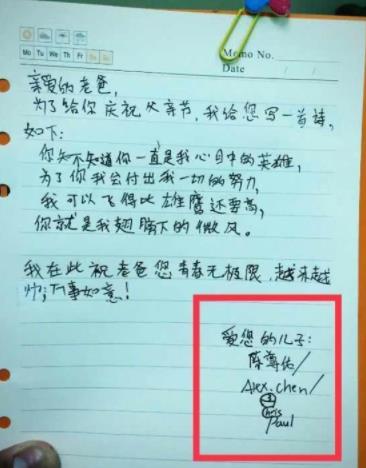 Mo Tu We Th Fr Sa Su
Memo No.
Date / /
亲爱的老爸,
为了给你庆祝父亲节,我给您写一首诗,
如下:
你知不知道你一直是我心目中的英雄,
为了你我会付出我一切的努力,
我可以飞得比雄鹰还要高,
你就是我翅膀下的微风。
我在此祝老爸您青春无极限,越来越
帅,万事如意!
爱您的儿子:
陈尊佑/
Alex.chen/
Chris
Paul